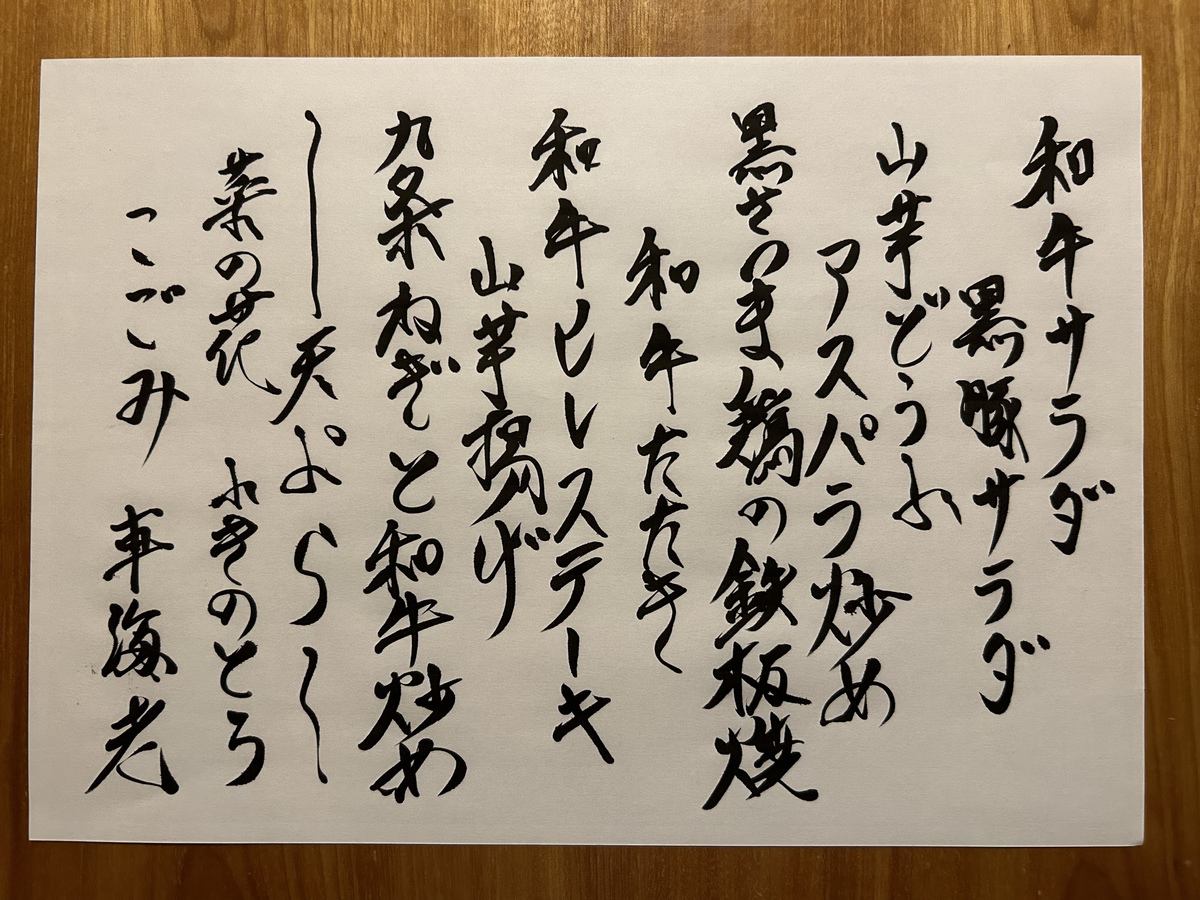 和牛サラダ
黒豚サラダ
山芋どうふ
アスパラ炒め
黒さつま鶏の鉄板焼
和牛たたき
和牛ヒレステーキ
山芋揚げ
九条ねぎと和牛炒め
〜天ぷら〜
菜の花 ふきのとう
こごみ 車海老